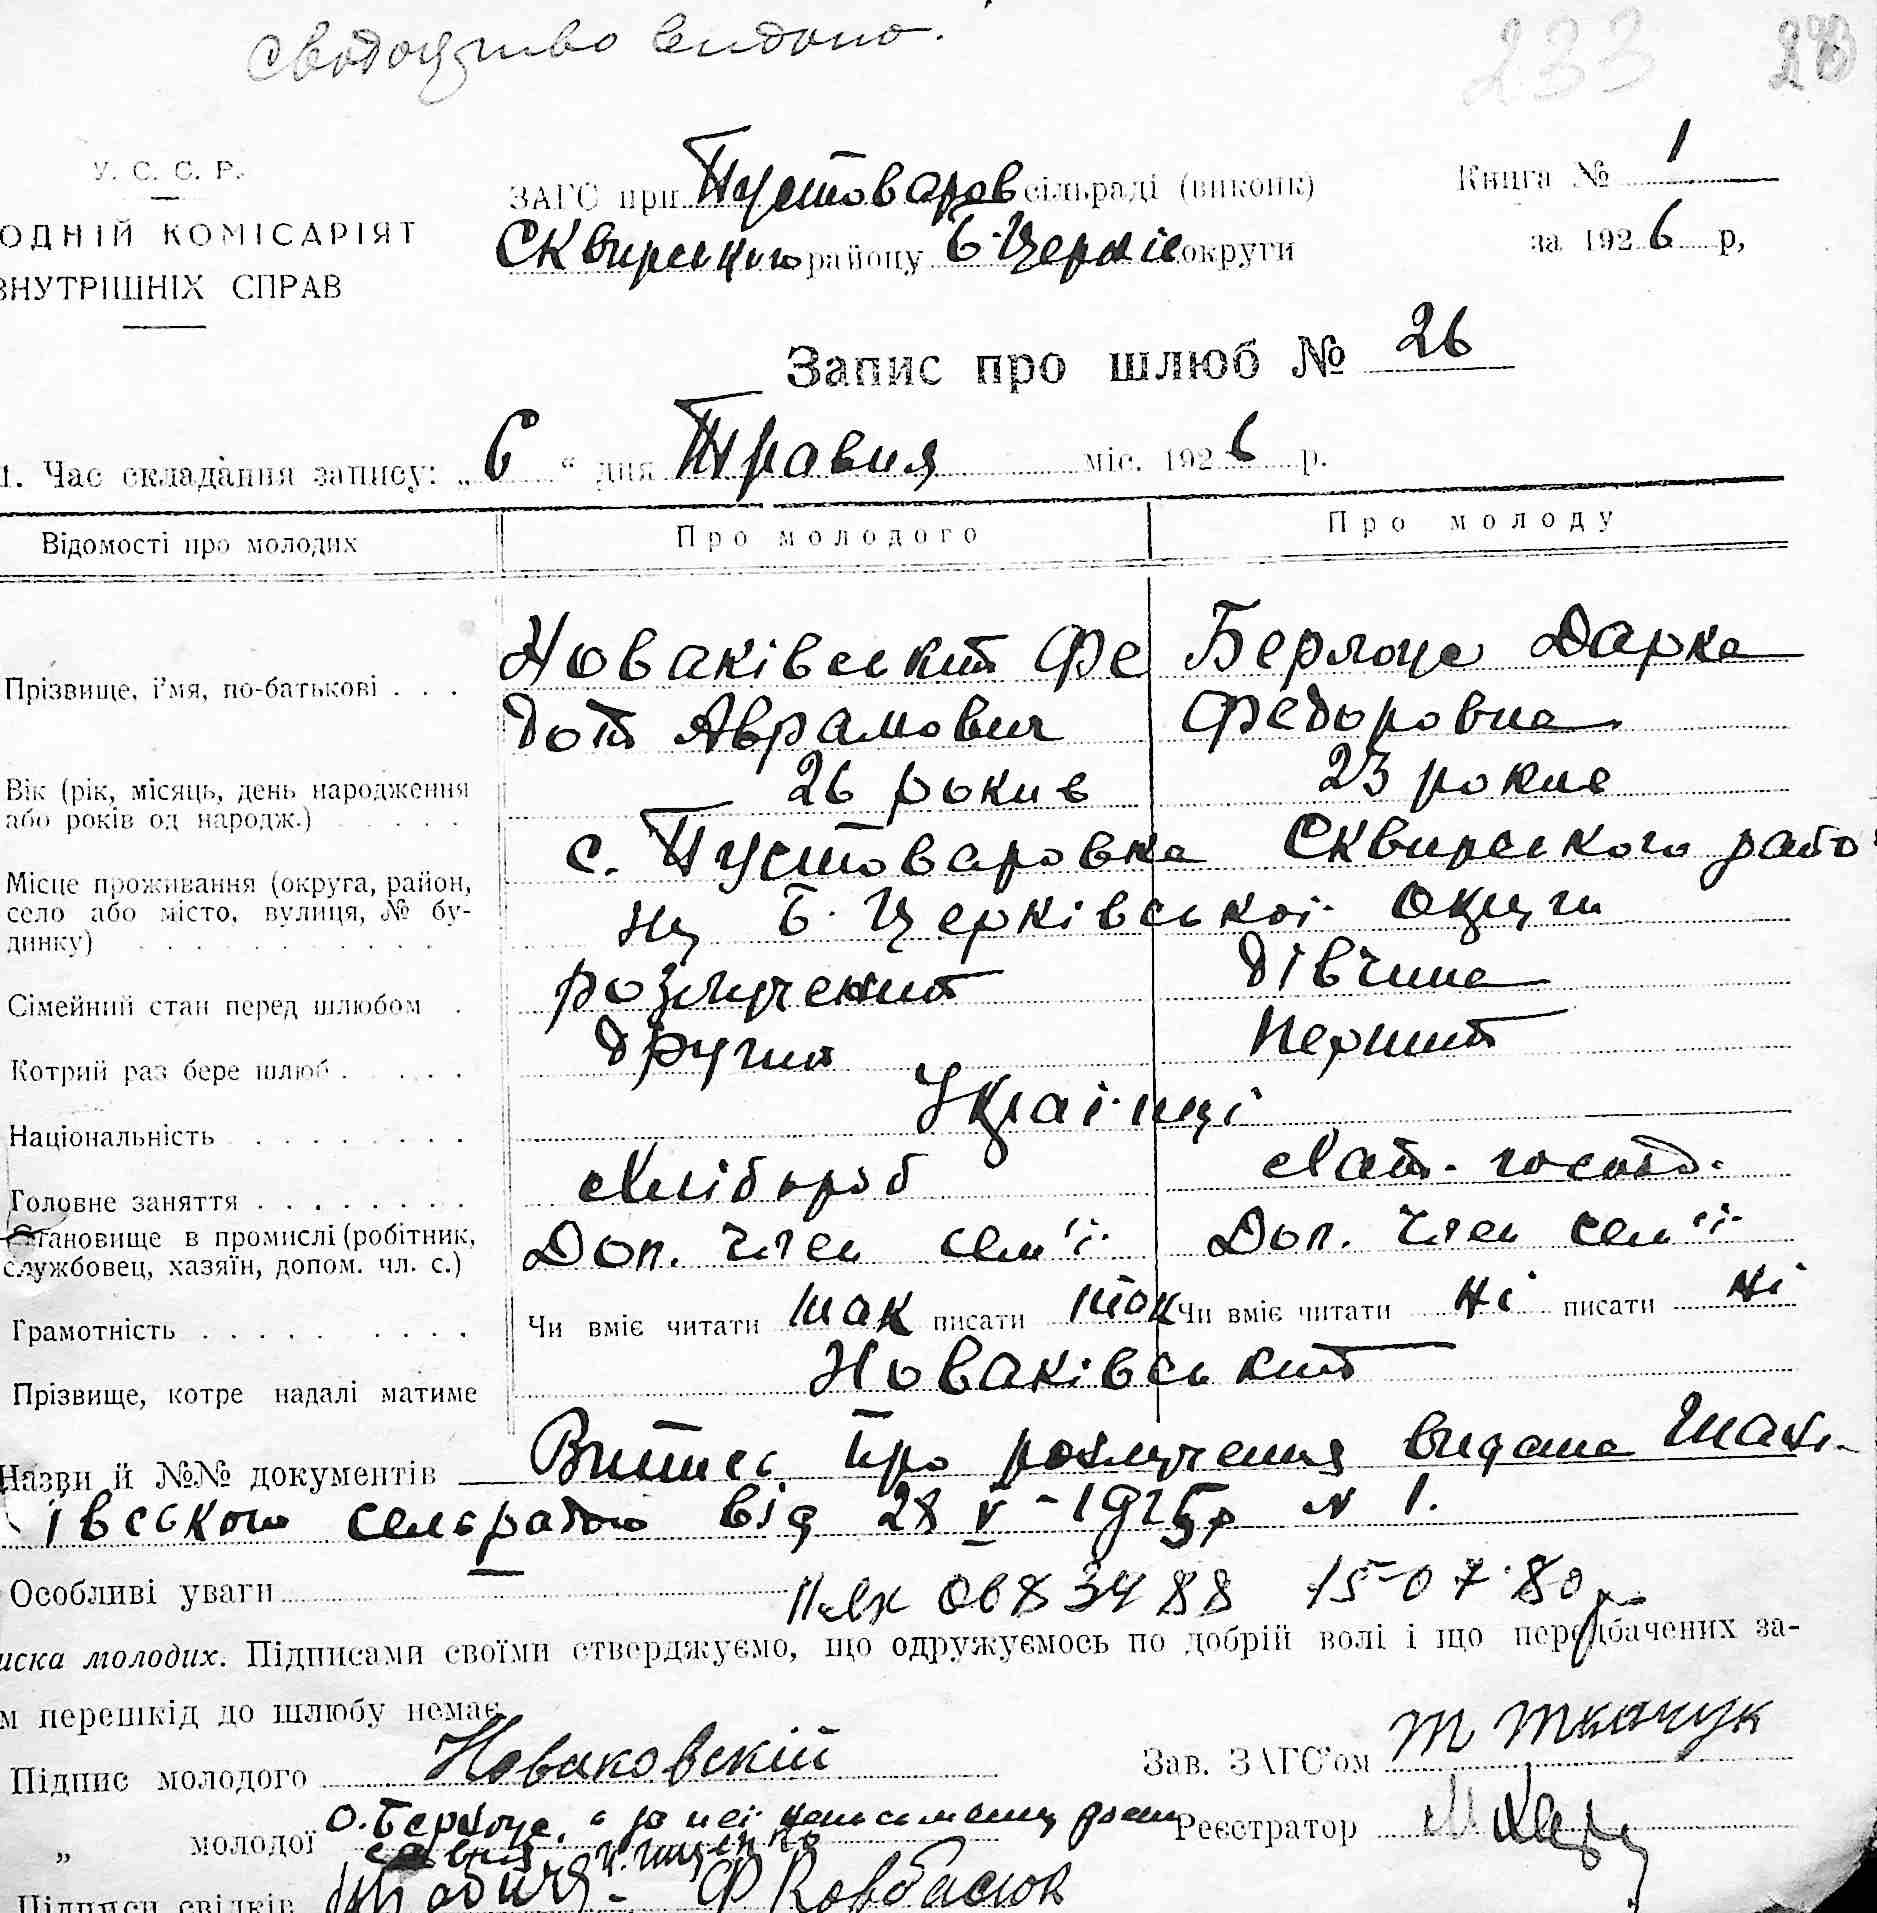 Свідоцтво видано.
233
У. С. С. Р.
ЗАГС при Пустоваров сільраді (виконк)
Книга № 1
ОДНІЙ КОМІСАРІЯТ
Сквирського району Б-Церків округи
за 1926 р,
ВНУТРІШНІХ СПРАВ
Запис про шлюб № 26
1. Час складання запису: „ 6 “ дня Травня міс. 1926 р.
Відомості про молодих
Про молодого
Про молоду
Прізвище, і'мя, по-батькові . . .
Новаківський Фе
дот Аврамович
Берлоца Дарка
Федоровна
Вік (рік, місяць, день народження
або років од народж.) . . . . .
26 рокив
23 рокив
Місце проживання (округа, район,
село або місто, вулиця, № бу-
динку) . . . . . . . . . .
с. Пустоваровка Сквирського райо
ну Б. Церківської округи
Сімейний стан перед шлюбом .
розлучений
дівчина
Котрий раз бере шлюб . . . . .
другий
перший
Національність . . . . . . . . .
Українці
Головне заняття . . . . . . . .
Хлібороб
Хат. господ.
Становище в промислі (робітник,
службовец, хазяїн, допом. чл. с.)
Доп. член сем'ї
Доп. член сем'ї
Грамотність . . . . . . . . .
Чи вміє читати так писати так
Чи вміє читати ні писати ні
Прізвище, котре надалі матиме
Новаківський
Назви й №№ документів Витпес про розлучення видана
івською сельрадою від 28 V-1925р N 1.
Особливі уваги —
0683488 15-07-80р
иска молодих. Підписами своїми стверджуємо, що одружуємось по добрій волі і що передбачених за-
м перешкід до шлюбу немає
Підпис молодого Новаковскій
Зав. ЗАГС'ом Т Ткачук
„ молодої за неї
Реєстратор
Підписи свідків Ф Ковбасюк